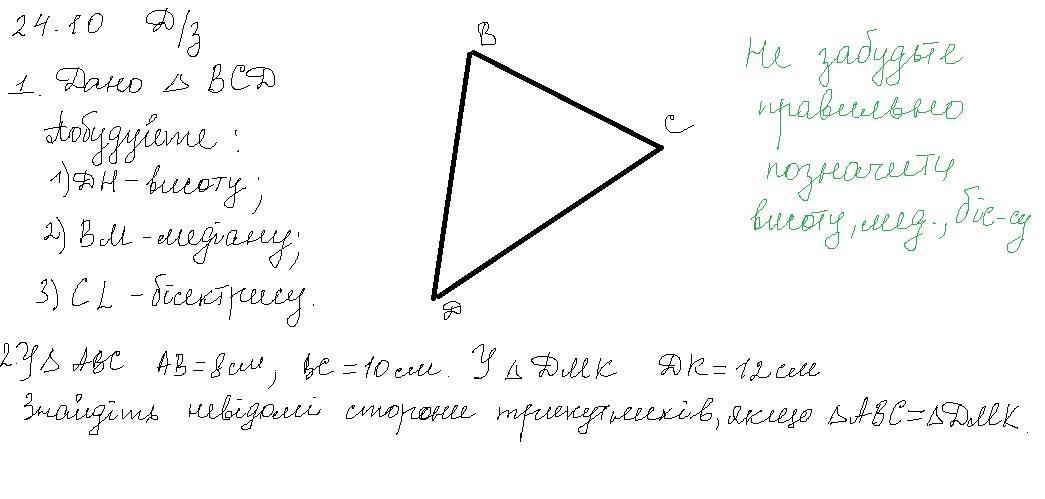 24.10 Д/з
1. Дано △ BCD
Побудуйте :
1) DH - висоту;
2) BM - медіану;
3) CL - бісектрису.
B
C
D
Не забудьте
правильно
позначити
висоту, мед., біс-су
2. У △ ABC AB = 8 см, BC = 10 см. У △ DMK DK = 12 см
Знайдіть невідомі сторони трикутників, якщо △ABC = △DMK.